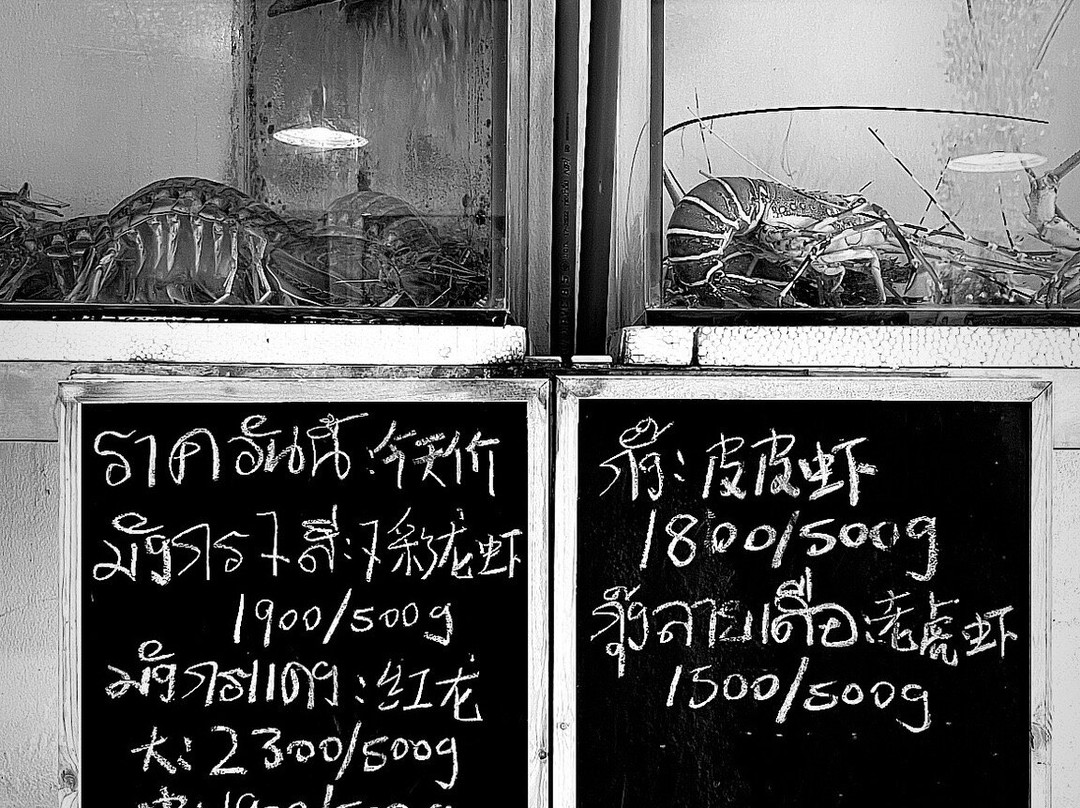 ราควันนี้:今天价
มังกร 7 สี:7彩龙虾
1900/500g
มังกรแดง:红龙
大:2300/500g
กั้ง:皮皮虾
1800/500g
กุ้งลายเสือ:老虎虾
1500/500g